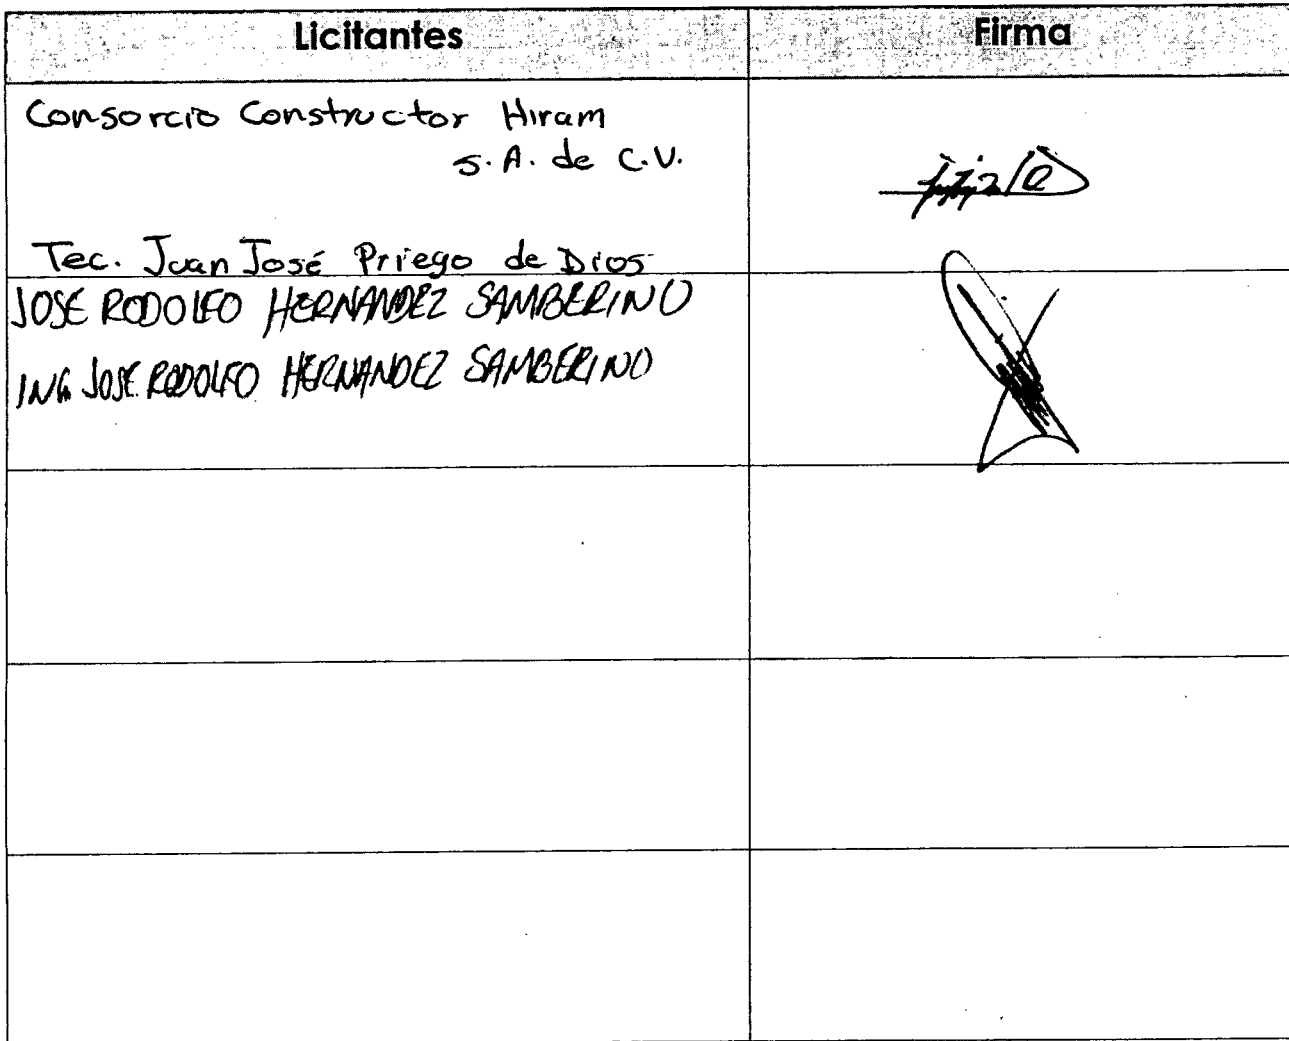 Licitantes Firma
Consorcio Constructor Hiram
S.A. de C.V.
Tec. Juan José Priego de Dios
JOSE RODOLFO HERNANDEZ SAMBERINO
ING. JOSE RODOLFO HERNANDEZ SAMBERINO